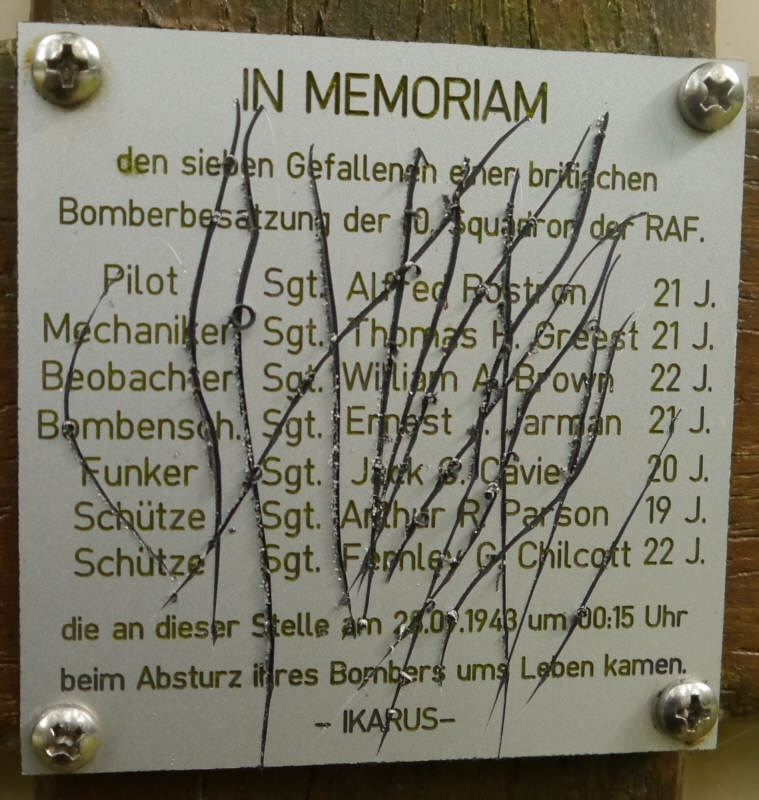 IN MEMORIAM
den sieben Gefallenen einer britischen
Bomberbesatzung der Squadron der RAF.
Pilot Sgt. Alfred Rostron 21 J.
Mechaniker Sgt. Thomas H. Greest 21 J.
Beobachter Sgt. William A. Brown 22 J.
Bombensch. Sgt. Ernest J. Jarman 21 J.
Funker Sgt. Jack G. Cavie 20 J.
Schütze Sgt. Arthur R. Parson 19 J.
Schütze Sgt. Fernley G. Chilcott 22 J.
die an dieser Stelle am um 00:15 Uhr
beim Absturz ihres Bombers ums Leben kamen.
- IKARUS-